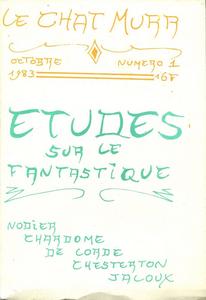 LE CHAT MURR
OCTOBRE NUMERO 1
1983 16F
ETUDES
SUR LE
FANTASTIQUE
NODIER
CHARDOME
DE LORDE
CHESTERTON
JALOUX